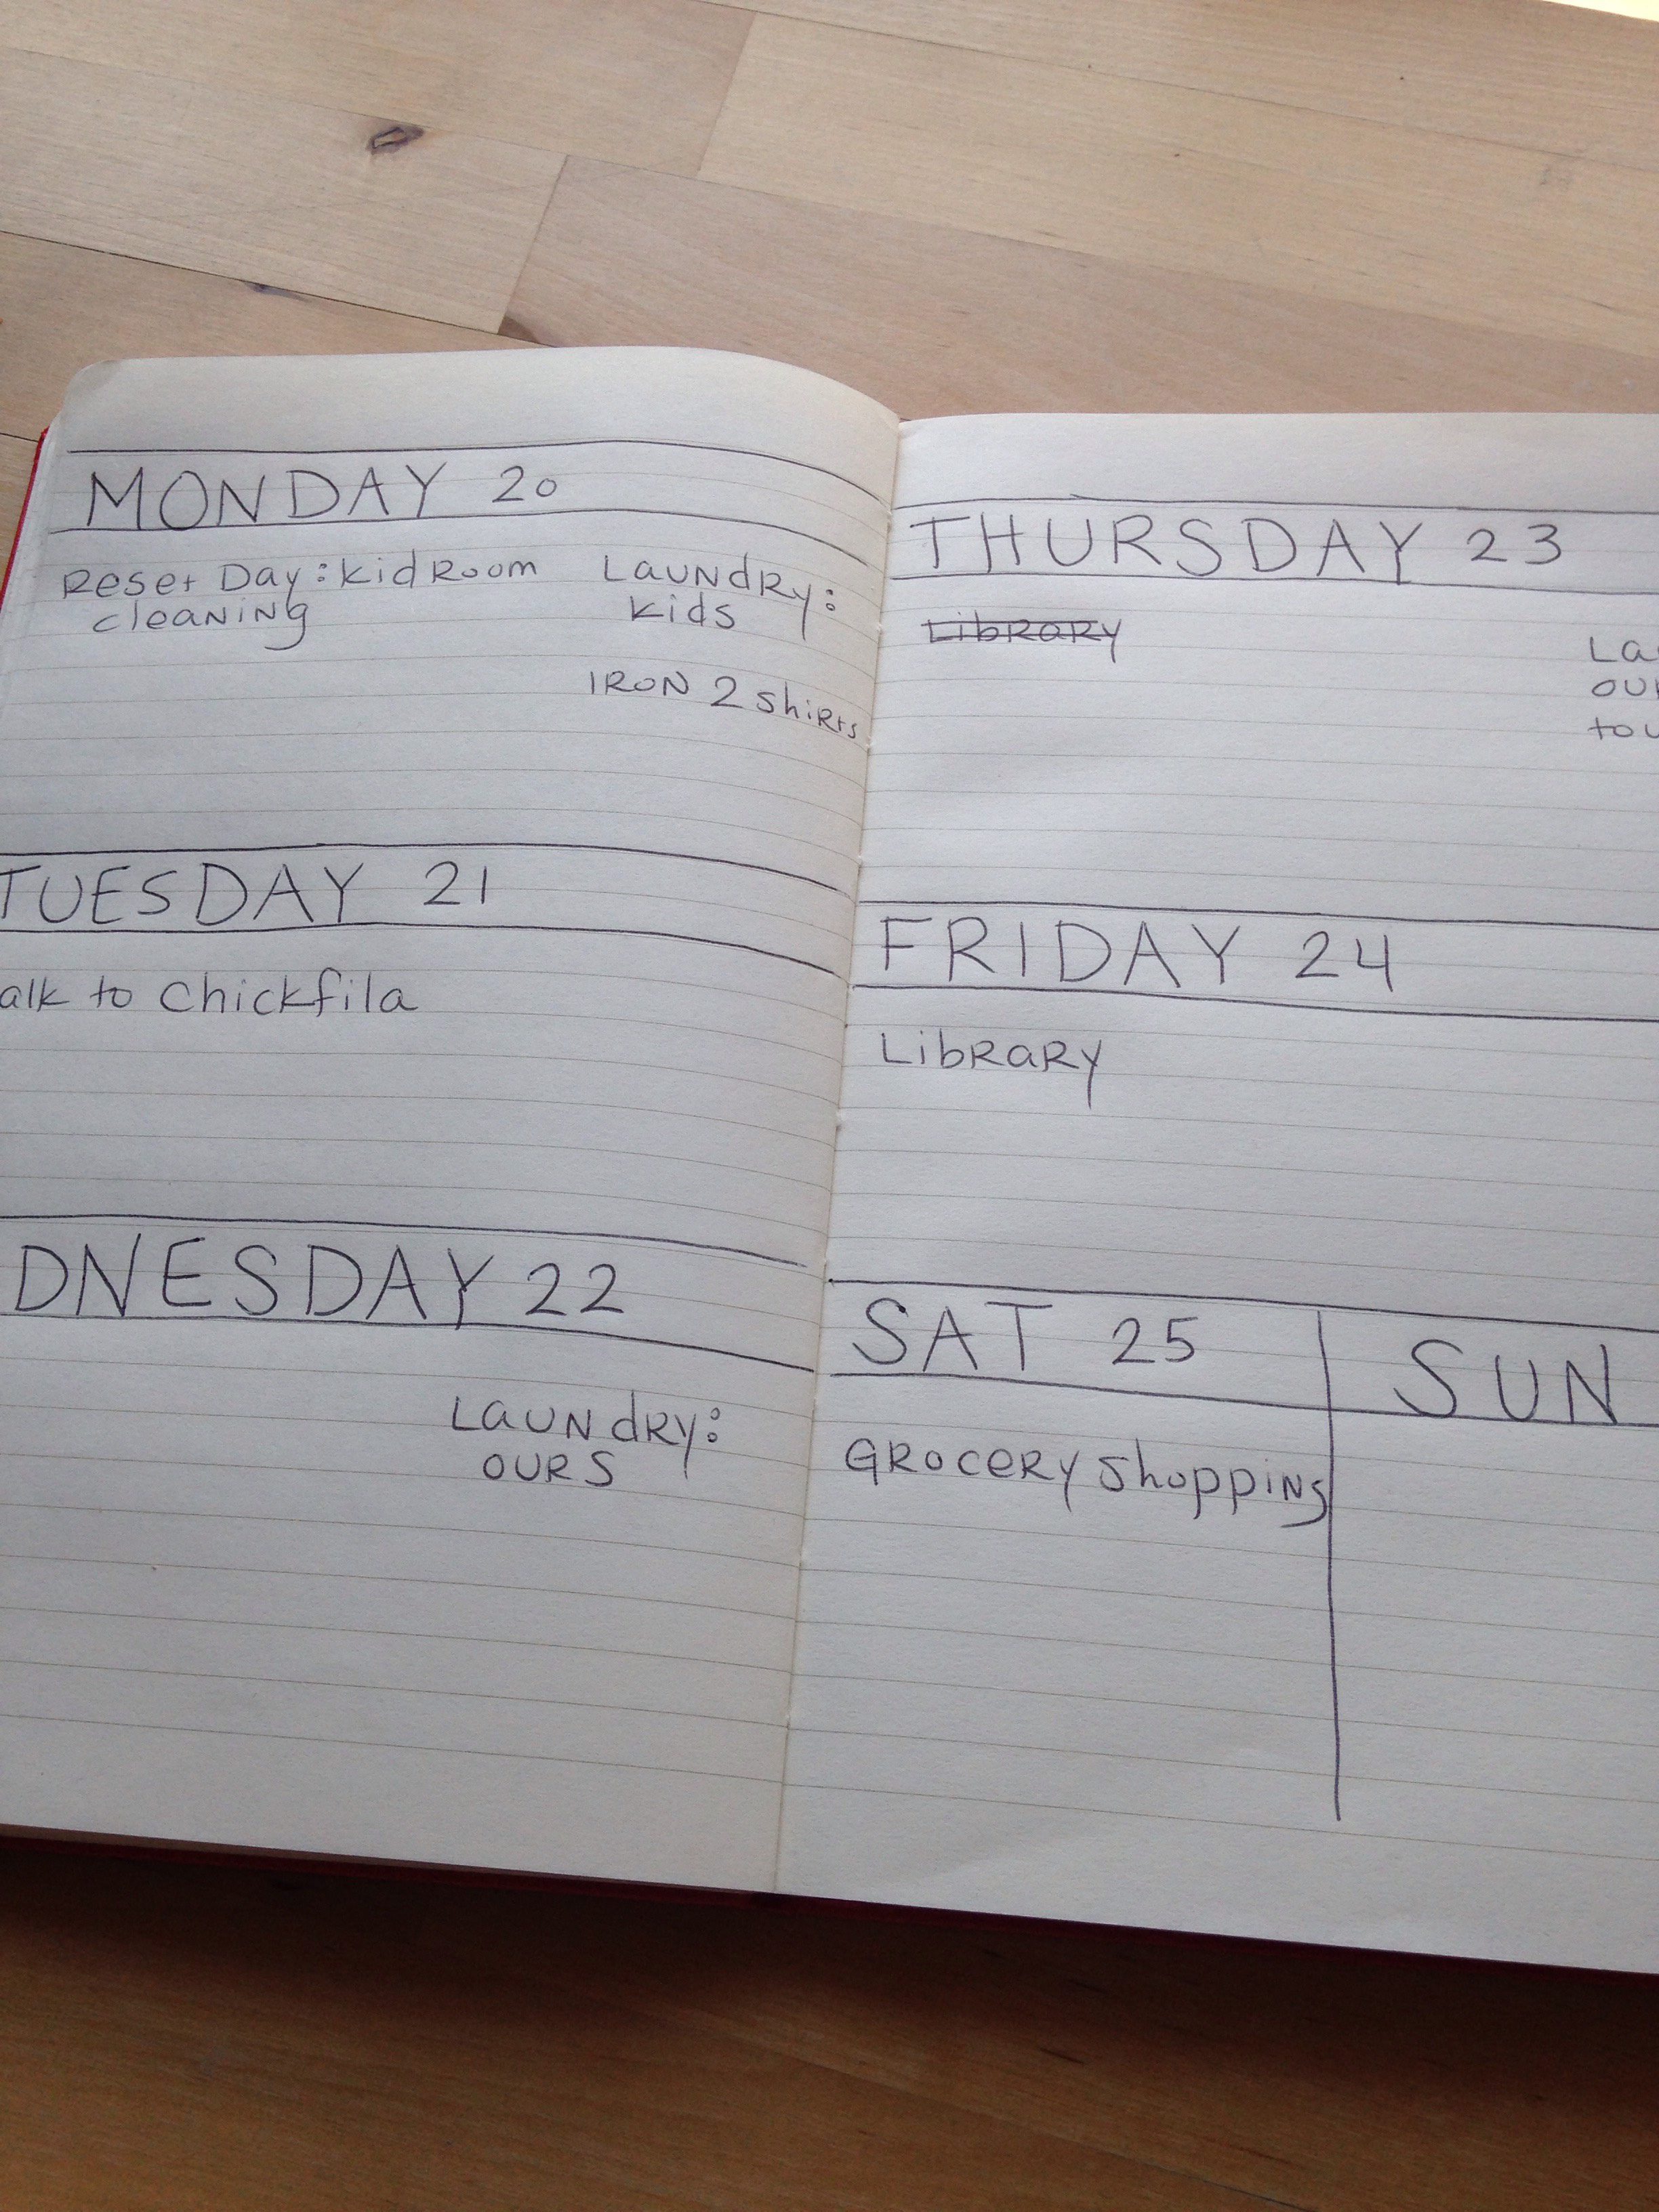 MONDAY 20
Reset Day: kid Room
cleaning
Laundry:
kids
IRON 2 shirts
TUESDAY 21
alk to Chickfila
DNESDAY 22
Laundry:
OURS
THURSDAY 23
Library
La
OU
tow
FRIDAY 24
Library
SAT 25
Grocery shopping
SUN